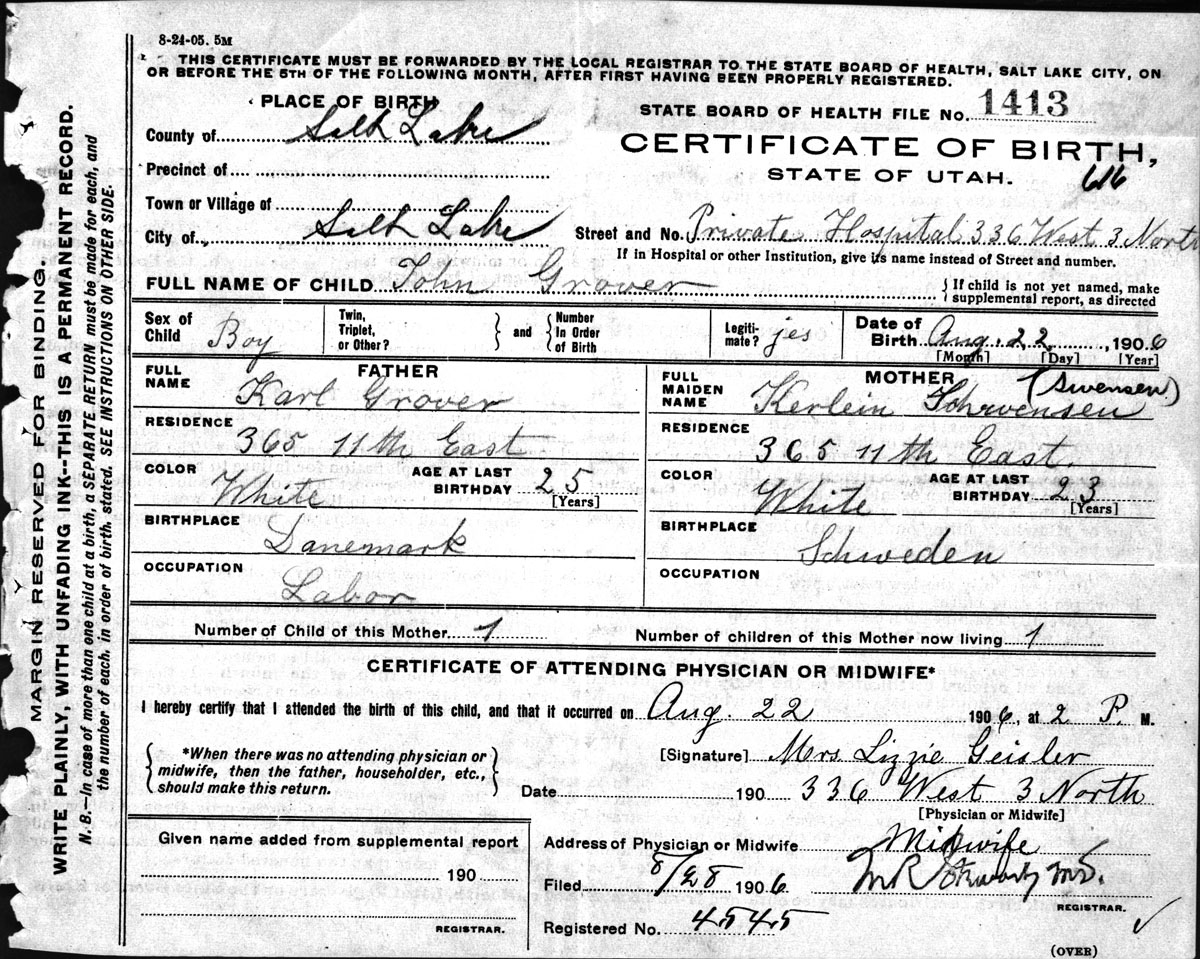 8-24-05. 5M
THIS CERTIFICATE MUST BE FORWARDED BY THE LOCAL REGISTRAR TO THE STATE BOARD OF HEALTH, SALT LAKE CITY, ON
OR BEFORE THE 5TH OF THE FOLLOWING MONTH, AFTER FIRST HAVING BEEN PROPERLY REGISTERED.
MARGIN RESERVED FOR BINDING
WRITE PLAINLY, WITH UNFADING INK--THIS IS A PERMANENT RECORD.
N. B.—In case of more than one child at a birth, a SEPARATE RETURN must be made for each, and
the number of each, in order of birth, stated. SEE INSTRUCTIONS ON OTHER SIDE.
PLACE OF BIRTH
STATE BOARD OF HEALTH FILE No. 1413
County of Salt Lake
CERTIFICATE OF BIRTH,
STATE OF UTAH.
616
Precinct of
Town or Village of
City of Salt Lake
Street and No. Private Hospital 336 West 3 North
If in Hospital or other Institution, give its name instead of Street and number.
FULL NAME OF CHILD John Grover
If child is not yet named, make
supplemental report, as directed
Sex of Child Boy
Twin, Triplet, or Other?
and
Number In Order of Birth
Legiti-mate? jes
Date of Birth Aug. 22, 1906
[Month] [Day] [Year]
FATHER
FULL NAME Karl Grover
RESIDENCE 365 11th East
COLOR White
AGE AT LAST BIRTHDAY 25 [Years]
BIRTHPLACE Danemark
OCCUPATION Labor
MOTHER (Swensen.)
FULL MAIDEN NAME Kerlein Schwensen
RESIDENCE 365 11th East.
COLOR White
AGE AT LAST BIRTHDAY 23 [Years]
BIRTHPLACE Schweden
OCCUPATION
Number of Child of this Mother 1
Number of children of this Mother now living 1
CERTIFICATE OF ATTENDING PHYSICIAN OR MIDWIFE*
I hereby certify that I attended the birth of this child, and that it occurred on Aug. 22 1906, at 2 P. M.
*When there was no attending physician or
midwife, then the father, householder, etc.,
should make this return.
[Signature] Mrs Lizzie Geisler
Date 190 336 West 3 North
[Physician or Midwife]
Given name added from supplemental report
190
REGISTRAR.
Address of Physician or Midwife Midwife
Filed 8/28 1906.
REGISTRAR.
Registered No. 4545
(OVER)